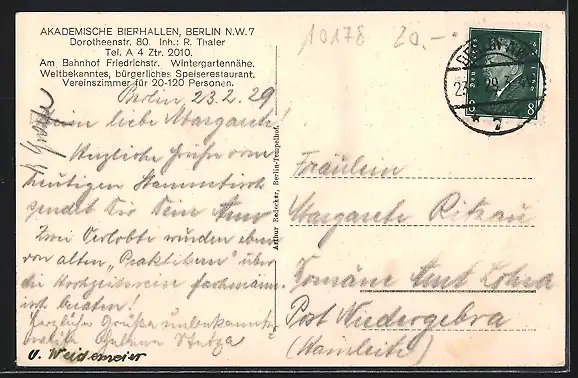 AKADEMISCHE BIERHALLEN, BERLIN N.W. 7
Dorotheenstr. 80. Inh.: R. Thaler
Tel. A 4 Ztr. 2010.
Am Bahnhof Friedrichstr. Wintergartennähe.
Weltbekanntes, bürgerliches Speiserestaurant.
Vereinszimmer für 20-120 Personen.
10178 20.-
Berlin, 23.2.29
Mein liebe Margarete!
Herzliche Grüsse vom
heutigen Stammtisch
sendet Dir Dein
Zwei Verlobte wurden eben
von alten „Praktikern" über
die Hochzeitsreise fachmänn-
isch beraten!
Herzliche Grüße unbekannter-
v. Weidemeier
Arthur Redecker, Berlin-Tempelhof.
Fräulein
Margarete Ritzau
Domäne Lohra
Post Niedergebra
(Hainleite)
8